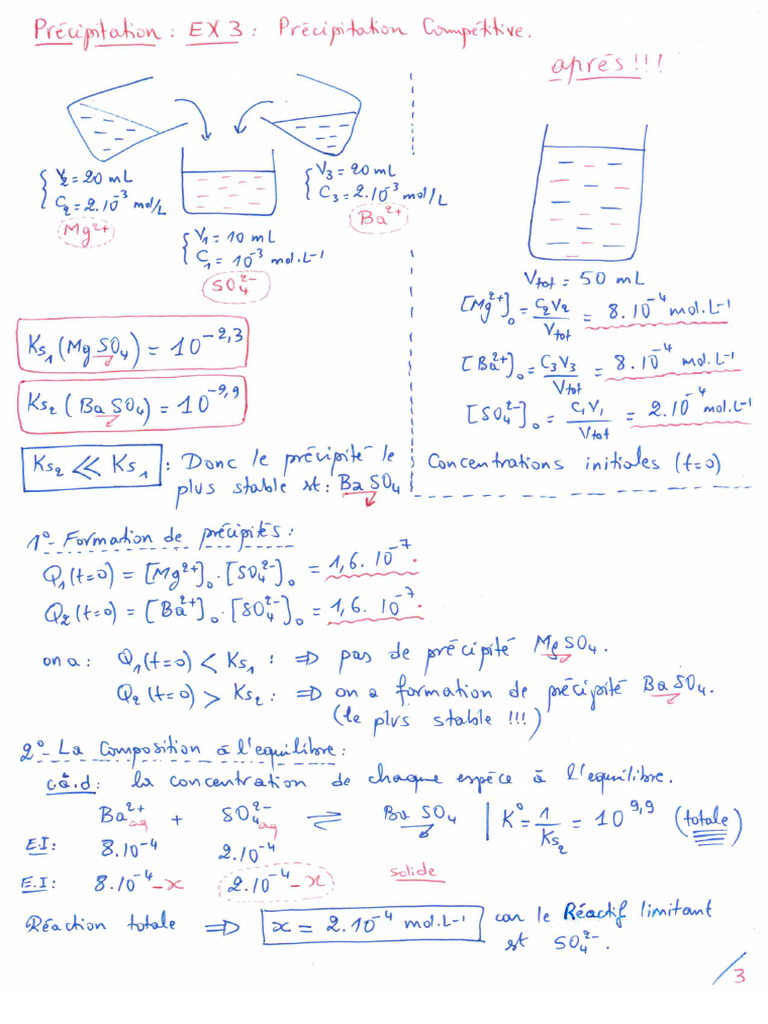 Précipitation : EX 3 : Précipitation Compétitive.
après!!!
V2 = 20 mL
C2 = 2.10^-3 mol/L
Mg^2+
V3 = 20 mL
C3 = 2.10^-3 mol/L
Ba^2+
V1 = 10 mL
C1 = 10^-3 mol.L^-1
SO4^2-
Vtot = 50 mL
[Mg^2+]0 = C2V2/Vtot = 8.10^-4 mol.L^-1
[Ba^2+]0 = C3V3/Vtot = 8.10^-4 mol.L^-1
[SO4^2-]0 = C1V1/Vtot = 2.10^-4 mol.L^-1
Concentrations initiales (t=0)
Ks1 (MgSO4) = 10^-2,3
Ks2 (BaSO4) = 10^-9,9
Ks2 << Ks1 : Donc le précipité le
plus stable st : BaSO4
1°- Formation de précipités :
Q1(t=0) = [Mg^2+]0 . [SO4^2-]0 = 1,6. 10^-7.
Q2(t=0) = [Ba^2+]0 . [SO4^2-]0 = 1,6. 10^-7.
on a : Q1(t=0) < Ks1 : => pas de précipité MgSO4.
Q2(t=0) > Ks2 : => on a formation de précipité BaSO4.
(le plus stable !!!)
2°- La Composition à l'equilibre :
càd : la concentration de chaque espèce à l'equilibre.
Ba^2+ aq + SO4^2- aq ⇌ BaSO4 | K° = 1/Ks2 = 10^9,9 (totale)
E.I : 8.10^-4 2.10^-4
E.I : 8.10^-4 - x 2.10^-4 - x solide
Réaction totale => x = 2.10^-4 mol.L^-1 car le Réactif limitant
st SO4^2-.
/3